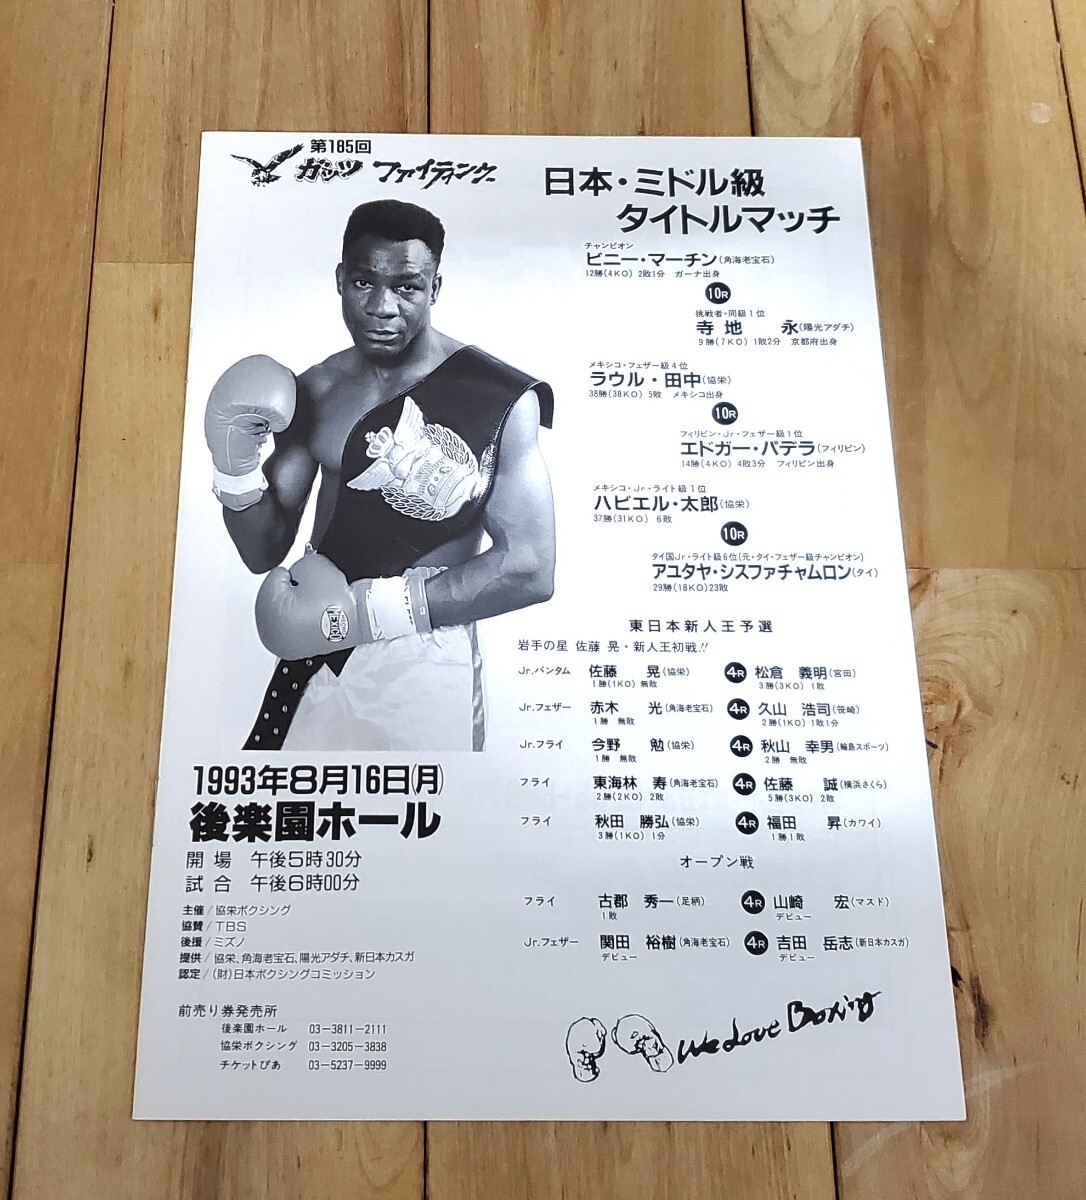 第185回
ガッツ ファイティング
日本・ミドル級
タイトルマッチ
チャンピオン
ビニー・マーチン(角海老宝石)
12勝(4KO) 2敗1分 ガーナ出身
10R
挑戦者・同級1位
寺地 永(陽光アダチ)
9勝(7KO) 1敗2分 京都府出身
メキシコ・フェザー級4位
ラウル・田中(協栄)
38勝(38KO) 5敗 メキシコ出身
10R
フィリピン・Jr・フェザー級1位
エドガー・パデラ(フィリピン)
14勝(4KO) 4敗3分 フィリピン出身
メキシコ・Jr・ライト級1位
ハビエル・太郎(協栄)
37勝(31KO) 6敗
10R
タイ国Jr・ライト級6位(元・タイ・フェザー級チャンピオン)
アユタヤ・シスファチャムロン(タイ)
29勝(18KO)23敗
東日本新人王予選
岩手の星 佐藤 晃・新人王初戦!!
Jr.バンタム 佐藤 晃(協栄) 4R 松倉 義明(宮田)
1勝(1KO) 無敗 3勝(3KO) 1敗
Jr.フェザー 赤木 光(角海老宝石) 4R 久山 浩司(笹崎)
1勝 無敗 2勝(1KO) 1敗1分
Jr.フライ 今野 勉(協栄) 4R 秋山 幸男(輪島スポーツ)
1勝 無敗 2勝 無敗
フライ 東海林 寿(角海老宝石) 4R 佐藤 誠(横浜さくら)
2勝(2KO) 2敗 5勝(3KO) 2敗
フライ 秋田 勝弘(協栄) 4R 福田 昇(カワイ)
3勝(1KO) 1分 1勝1敗
オープン戦
フライ 古郡 秀一(足柄) 4R 山崎 宏(マスド)
1敗 デビュー
Jr.フェザー 関田 裕樹(角海老宝石) 4R 吉田 岳志(新日本カスガ)
デビュー デビュー
We Love Boxing
1993年8月16日(月)
後楽園ホール
開場 午後5時30分
試合 午後6時00分
主催/協栄ボクシング
協賛/TBS
後援/ミズノ
提供/協栄、角海老宝石、陽光アダチ、新日本カスガ
認定/(財)日本ボクシングコミッション
前売り券発売所
後楽園ホール 03-3811-2111
協栄ボクシング 03-3205-3838
チケットぴあ 03-5237-9999